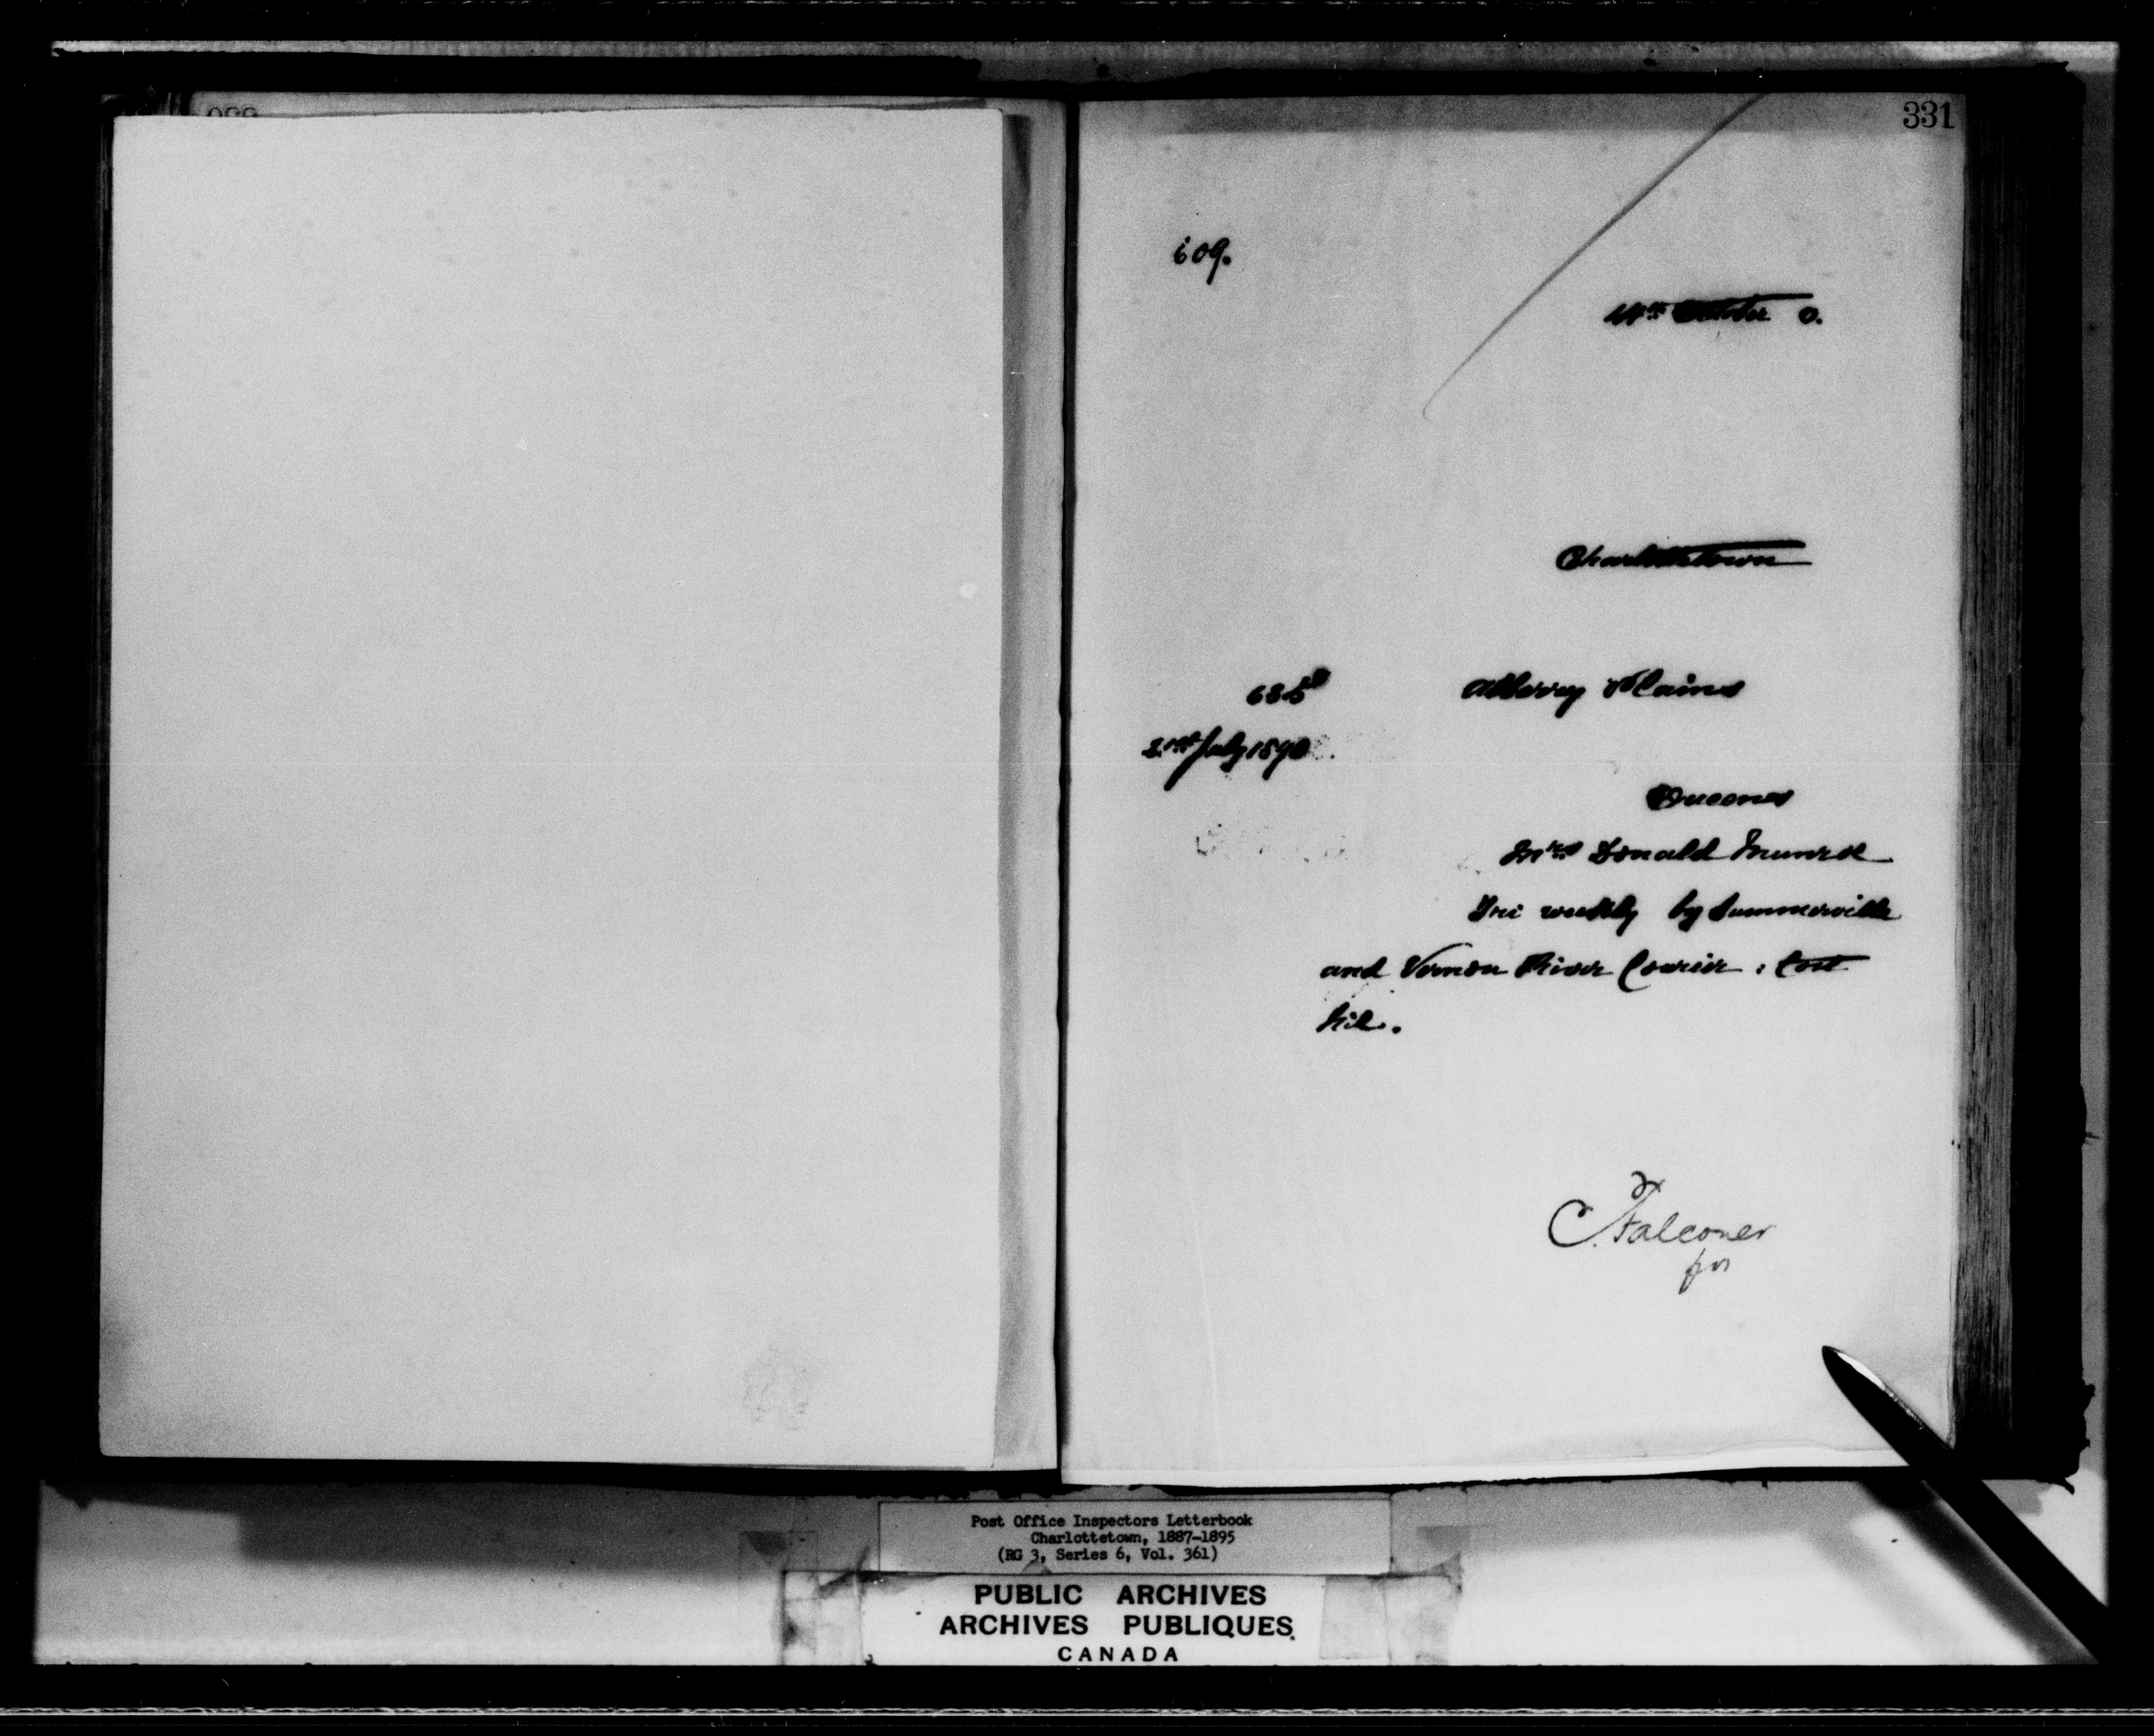 331
609.
October 0.
Charlottetown
635
Albery Plains
21st July 1890
Queens
Mrs Donald Munroe
Tri weekly by Summerville
and Vernon River Courier : Cost
Nil.
C. Falconer
for
Post Office Inspectors Letterbook
Charlottetown, 1887-1895
(RG 3, Series 6, Vol. 361)
PUBLIC ARCHIVES
ARCHIVES PUBLIQUES
CANADA